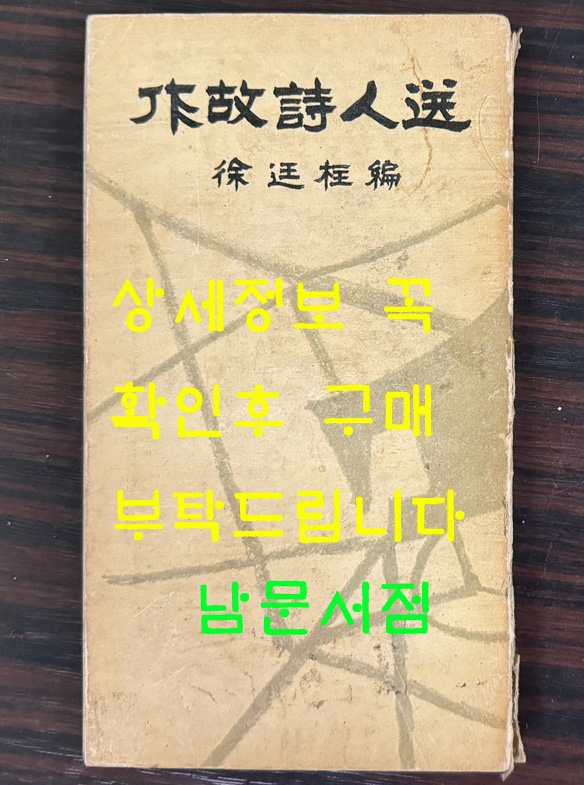 作故詩人選
徐廷柱編
상세정보 꼭
확인후 구매
부탁드립니다
남문서점